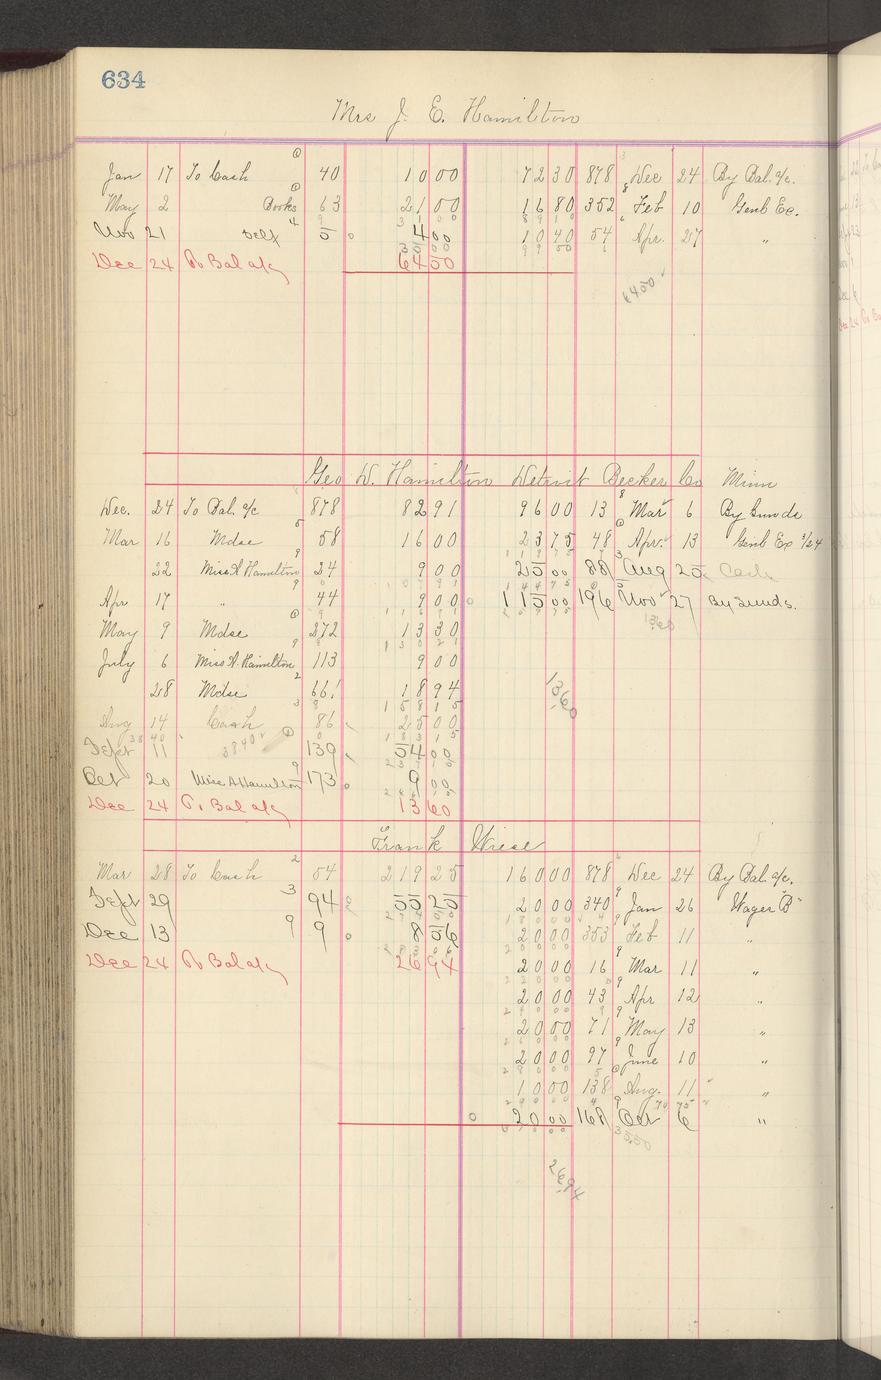 634
Mrs J. E. Hamilton
Jan 17 To Cash 40 10 00 72 30 878 Dec 24 By Bal. a/c.
May 2 Books 63 21 00 16 80 352 Feb 10 Genl Ex.
Nov 21 5 4 00 10 40 54 Apr. 27 "
Dec 24 To Bal a/c 64 50
64 50
Geo W. Hamilton Detroit Becker Co Minn
Dec. 24 To Bal. a/c 878 82 91 96 00 13 Mar 6 By Sunds
Mar 16 Mdse 58 16 00 23 75 48 Apr. 13 Genl Ex 3/24
22 Miss A Hamilton 24 9 00 25 00 88 Aug 25 Cash
Apr 17 " 44 9 00 115 00 196 Nov 27 By Sunds.
May 9 Mdse 272 13 30 13 60
July 6 Miss A. Hamilton 113 9 00
28 Mdse 661 18 94 13 60
Aug 14 Cash 86 25 00
Sept 11 38 40 139 54 00
Oct 20 Miss A Hamilton 173 9 00
Dec 24 To Bal a/c 13 60
Frank Wiese
Mar 28 To Cash 54 219 25 160 00 878 Dec 24 By Bal. a/c.
Sept 29 94 55 25 20 00 340 Jan 26 Wages "B"
Dec 13 9 8 56 20 00 353 Feb 11 "
Dec 24 To Bal a/c 26 94 20 00 16 Mar 11 "
20 00 43 Apr 12 "
20 00 71 May 13 "
20 00 97 June 10 "
10 00 138 Aug. 11 "
20 00 168 Oct 6 "
26 94